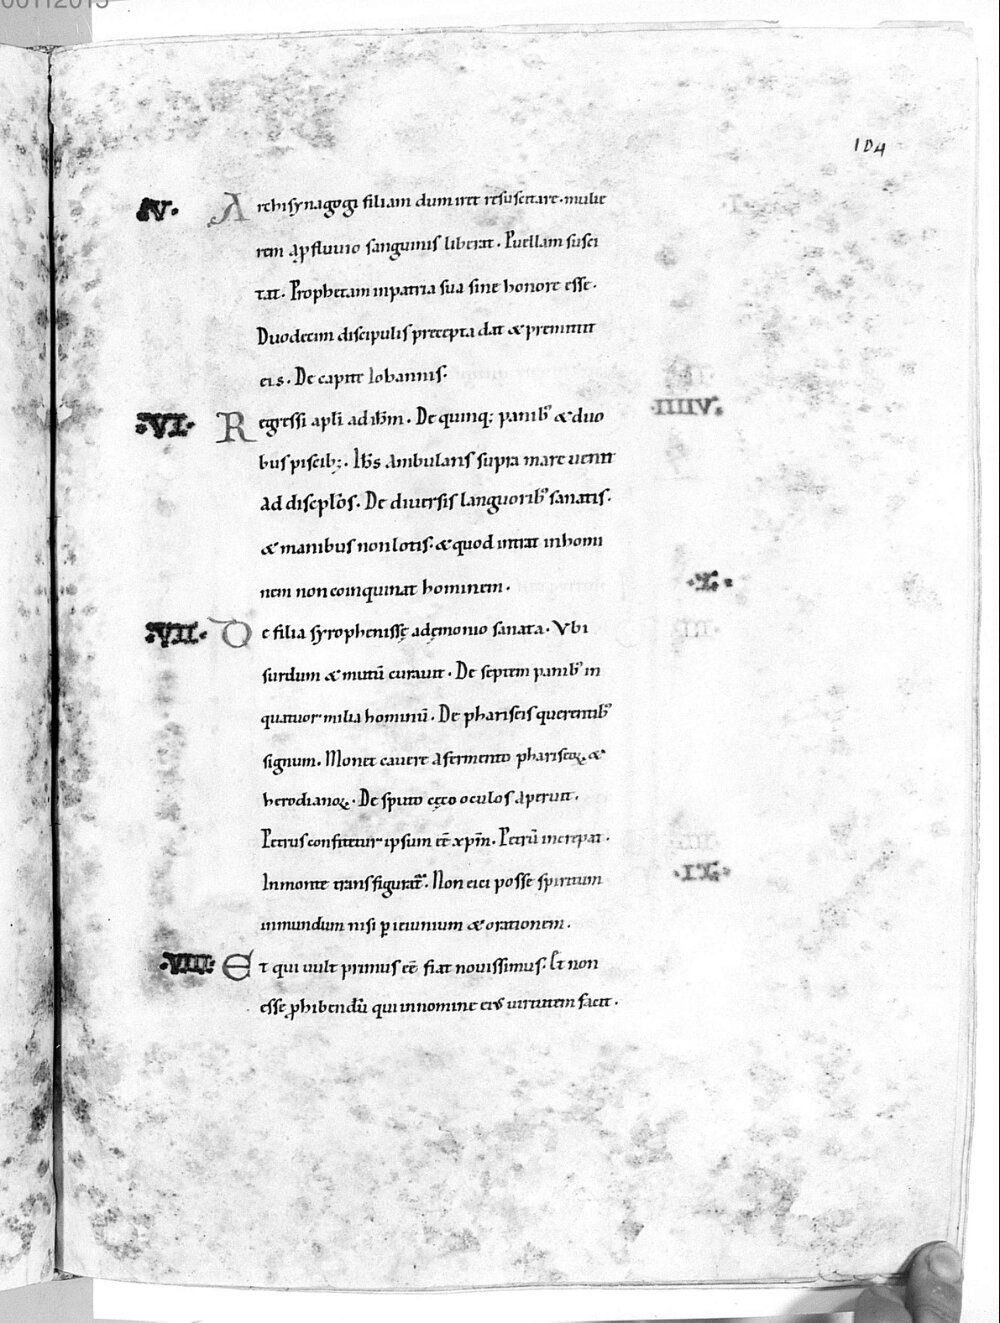 104
·V· Archisynagogi filiam dum iret resuscitare. mulie
rem a ꝓfluuio sanguinis liberat. Puellam susci
tat. Prophetam inpatria sua sine honore esse.
Duodecim discipulis precepta dat & premittit
eis. De capite Iohannis.
·VI· Regressi apłi ad ihm̄. De quinq; panib' & duo
bus piscib;. Ihs̄ ambulans supra mare uenit
ad discplōs. De diuersis languorib' sanatis.
& manibus nonlotis. & quod intrat inhomi
nem non coinquinat hominem.
·VII· De filia syrophenissę ademonio sanata. Vbi
surdum & mutū curauit. De septem panib' in
quatuor milia hominū. De phariseis querentib'
signum. Monet cauere afermento phariseoꝝ &
herodianoꝝ. De sputo cęco oculos aperuit.
Petrus confitetur ipsum eē xpm̄. Petrū increpat.
Inmonte transfigurat. Non eici posse spiritum
inmundum nisi ꝑ ieiunium & orationem.
·VIII· Et qui uult primus eē fiat nouissimus. Et non
esse ꝓhibendū qui innomine eius uirtutem facit.